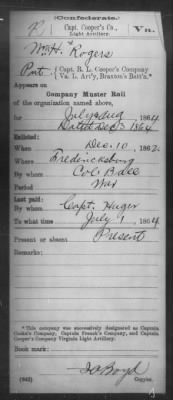 (Confederate.)
R | Capt. Cooper's Co., | Va.
Light Artillery.
Wm H. Rogers
Pvt., Capt. R. L. Cooper's Company
Va. L. Art'y, Braxton's Batt'n.*
Appears on
Company Muster Roll
of the organization named above,
for July & Aug, 1864.
Dated Sept 3 1864
Enlisted:
When Dec. 10, 1862.
Where Fredericksburg
By whom Col. B. Lee
Period War
Last paid:
By whom Capt. Hager
To what time July 1, 1864.
Present or absent Present
Remarks:
*This company was successively designated as Captain
Cooke's Company, Captain French's Company, and Captain
Cooper's Company Virginia Light Artillery.
Book mark:
(642) Boyd
Copyist.